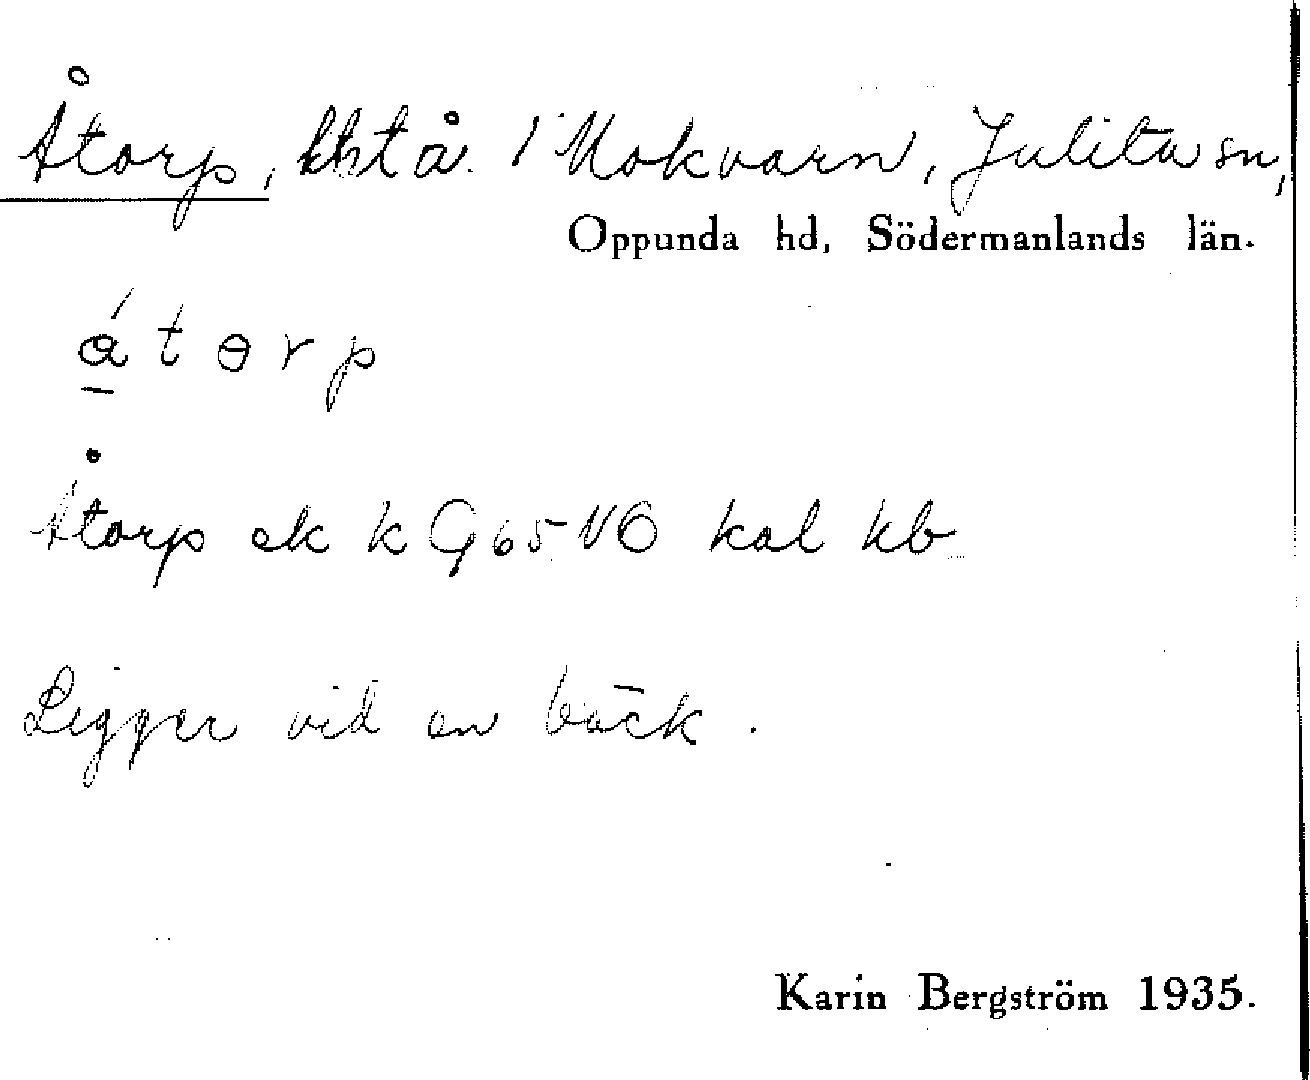 Åtorp, lht å 1 Mokvarn, Julita sn,
Oppunda hd, Södermanlands län.
á̱ t ɵ r p
Åtorp ek k G 65 NO kal kb
Ligger vid en bäck.
Karin Bergström 1935.